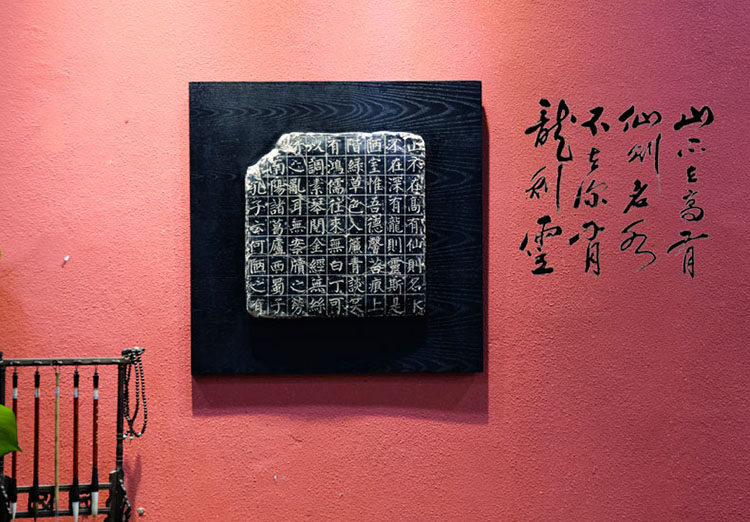 山不在高有
仙则名水
不在深有
龍则靈
山不在高有仙則名水
不在深有龍則靈斯是
陋室惟吾德馨苔痕上
階綠草色入簾青談笑
有鴻儒往來無白丁可
以調素琴閱金經無絲
竹之亂耳無案牘之勞
南陽諸葛廬西蜀子
孔子云何陋之有